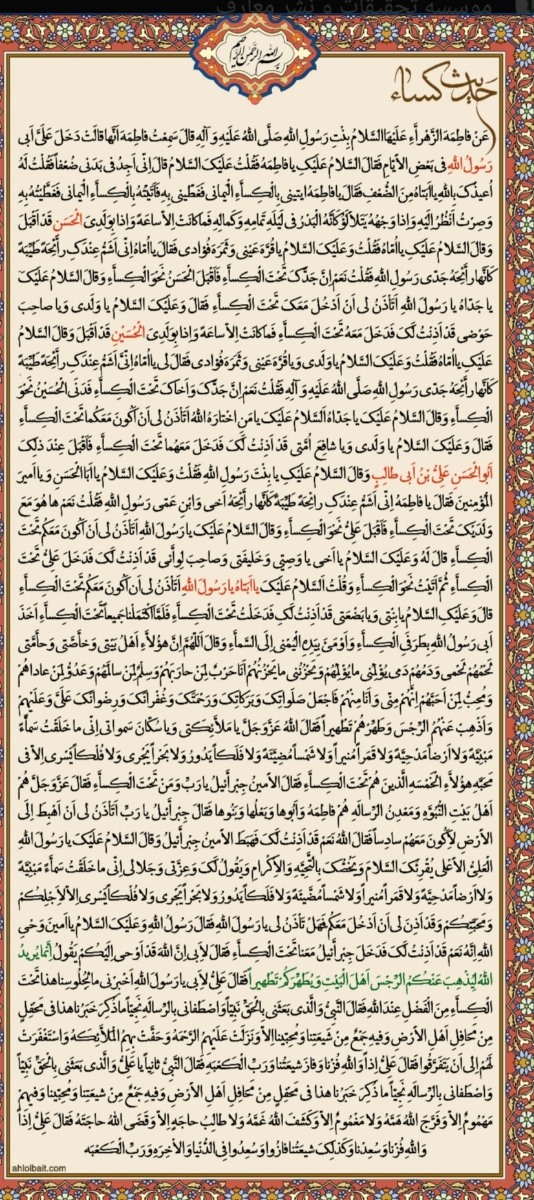 موسسه تحقیقات و نشر معارف
بسم الله الرحمن الرحیم
حدیث کساء
عَنْ فاطِمَةَ الزَّهْراءِ عَلَیْهَا السَّلامُ بِنْتِ رَسُولِ اللهِ صَلَّی اللهُ عَلَیْهِ وَ آلِهِ قالَ سَمِعْتُ فاطِمَةَ اَنَّها قالَتْ دَخَلَ عَلَیَّ اَبی
رَسُولُ اللهِ فی بَعْضِ الاَیّامِ فَقالَ السَّلامُ عَلَیْکِ یا فاطِمَةُ فَقُلْتُ عَلَیْکَ السَّلامُ قالَ اِنّی اَجِدُ فی بَدَنی ضُعْفاً فَقُلْتُ لَهُ
اُعیذُکَ بِاللهِ یا اَبَتاهُ مِنَ الضُّعْفِ فَقالَ یا فاطِمَةُ ایتینی بِالْکِساءِ الْیَمانی فَغَطّینی بِهِ فَاَتَیْتُهُ بِالْکِساءِ الْیَمانی فَغَطَّیْتُهُ بِهِ
وَ صِرْتُ اَنْظُرُ اِلَیْهِ وَ اِذا وَجْهُهُ یَتَلَأْلَؤُ کَاَنَّهُ الْبَدْرُ فی لَیْلَةِ تَمامِهِ وَ کَمالِهِ فَما کانَتْ اِلاّ ساعَةً وَ اِذا بِوَلَدِیَ الْحَسَنِ قَدْ اَقْبَلَ
وَ قالَ السَّلامُ عَلَیْکِ یا اُمّاهُ فَقُلْتُ وَ عَلَیْکَ السَّلامُ یا قُرَّةَ عَیْنی وَ ثَمَرَةَ فُؤادی فَقالَ یا اُمّاهُ اِنّی اَشَمُّ عِنْدَکِ رائِحَةً طَیِّبَةً
کَاَنَّها رائِحَةُ جَدّی رَسُولِ اللهِ فَقُلْتُ نَعَمْ اِنَّ جَدَّکَ تَحْتَ الْکِساءِ فَاَقْبَلَ الْحَسَنُ نَحْوَ الْکِساءِ وَ قالَ السَّلامُ عَلَیْکَ
یا جَدّاهُ یا رَسُولَ اللهِ اَتَأْذَنُ لی اَنْ اَدْخُلَ مَعَکَ تَحْتَ الْکِساءِ فَقالَ وَ عَلَیْکَ السَّلامُ یا وَلَدی وَ یا صاحِبَ
حَوْضی قَدْ اَذِنْتُ لَکَ فَدَخَلَ مَعَهُ تَحْتَ الْکِساءِ فَما کانَتْ اِلاّ ساعَةً وَ اِذا بِوَلَدِیَ الْحُسَیْنِ قَدْ اَقْبَلَ وَ قالَ السَّلامُ
عَلَیْکِ یا اُمّاهُ فَقُلْتُ وَ عَلَیْکَ السَّلامُ یا وَلَدی وَ یا قُرَّةَ عَیْنی وَ ثَمَرَةَ فُؤادی فَقالَ لی یا اُمّاهُ اِنّی اَشَمُّ عِنْدَکِ رائِحَةً طَیِّبَةً
کَاَنَّها رائِحَةُ جَدّی رَسُولِ اللهِ صَلَّی اللهُ عَلَیْهِ وَ آلِهِ فَقُلْتُ نَعَمْ اِنَّ جَدَّکَ وَ اَخاکَ تَحْتَ الْکِساءِ فَدَنَی الْحُسَیْنُ نَحْوَ
الْکِساءِ وَ قالَ السَّلامُ عَلَیْکَ یا جَدّاهُ اَلسَّلامُ عَلَیْکَ یا مَنِ اخْتارَهُ اللهُ اَتَأْذَنُ لی اَنْ اَکُونَ مَعَکُما تَحْتَ الْکِساءِ
فَقالَ وَ عَلَیْکَ السَّلامُ یا وَلَدی وَ یا شافِعَ اُمَّتی قَدْ اَذِنْتُ لَکَ فَدَخَلَ مَعَهُما تَحْتَ الْکِساءِ فَاَقْبَلَ عِنْدَ ذلِکَ
اَبُو الْحَسَنِ عَلِیُّ بْنُ اَبی طالِبٍ وَ قالَ السَّلامُ عَلَیْکِ یا بِنْتَ رَسُولِ اللهِ فَقُلْتُ وَ عَلَیْکَ السَّلامُ یا اَبَا الْحَسَنِ وَ یا اَمیرَ
الْمُؤْمِنینَ فَقالَ یا فاطِمَةُ اِنّی اَشَمُّ عِنْدَکِ رائِحَةً طَیِّبَةً کَاَنَّها رائِحَةُ اَخی وَ ابْنِ عَمّی رَسُولِ اللهِ فَقُلْتُ نَعَمْ ها هُوَ مَعَ
وَلَدَیْکَ تَحْتَ الْکِساءِ فَاَقْبَلَ عَلِیٌّ نَحْوَ الْکِساءِ وَ قالَ السَّلامُ عَلَیْکَ یا رَسُولَ اللهِ اَتَأْذَنُ لی اَنْ اَکُونَ مَعَکُمْ تَحْتَ
الْکِساءِ قالَ لَهُ وَ عَلَیْکَ السَّلامُ یا اَخی یا وَصِیّی وَ خَلیفَتی وَ صاحِبَ لِوائی قَدْ اَذِنْتُ لَکَ فَدَخَلَ عَلِیٌّ تَحْتَ
الْکِساءِ ثُمَّ اَتَیْتُ نَحْوَ الْکِساءِ وَ قُلْتُ اَلسَّلامُ عَلَیْکَ یا اَبَتاهُ یا رَسُولَ اللهِ اَتَأْذَنُ لی اَنْ اَکُونَ مَعَکُمْ تَحْتَ الْکِساءِ
قالَ وَ عَلَیْکِ السَّلامُ یا بِنْتی وَ یا بَضْعَتی قَدْ اَذِنْتُ لَکِ فَدَخَلْتُ تَحْتَ الْکِساءِ فَلَمَّا اکْتَمَلْنا جَمیعاً تَحْتَ الْکِساءِ اَخَذَ
اَبی رَسُولُ اللهِ بِطَرَفَیِ الْکِساءِ وَ اَوْمَئَ بِیَدِهِ الْیُمْنی اِلَی السَّماءِ وَ قالَ اَللّهُمَّ اِنَّ هؤُلاءِ اَهْلُ بَیْتی وَ خاصَّتی وَ حامَّتی
لَحْمُهُمْ لَحْمی وَ دَمُهُمْ دَمی یُؤْلِمُنی ما یُؤْلِمُهُمْ وَ یَحْزُنُنی ما یَحْزُنُهُمْ اَنَا حَرْبٌ لِمَنْ حارَبَهُمْ وَ سِلْمٌ لِمَنْ سالَمَهُمْ وَ عَدُوٌّ لِمَنْ عاداهُمْ
وَ مُحِبٌّ لِمَنْ اَحَبَّهُمْ اِنَّهُمْ مِنّی وَ اَنَا مِنْهُمْ فَاجْعَلْ صَلَواتِکَ وَ بَرَکاتِکَ وَ رَحْمَتَکَ وَ غُفْرانَکَ وَ رِضْوانَکَ عَلَیَّ وَ عَلَیْهِمْ
وَ اَذْهِبْ عَنْهُمُ الرِّجْسَ وَ طَهِّرْهُمْ تَطْهیراً فَقالَ اللهُ عَزَّ وَ جَلَّ یا مَلائِکَتی وَ یا سُکّانَ سَمواتی اِنّی ما خَلَقْتُ سَماءً
مَبْنِیَّةً وَ لا اَرْضاً مَدْحِیَّةً وَ لا قَمَراً مُنیراً وَ لا شَمْساً مُضیئَةً وَ لا فَلَکاً یَدُورُ وَ لا بَحْراً یَجْری وَ لا فُلْکاً یَسْری اِلاّ فی
مَحَبَّةِ هؤُلاءِ الْخَمْسَةِ الَّذینَ هُمْ تَحْتَ الْکِساءِ فَقالَ الاَمینُ جِبْرائیلُ یا رَبِّ وَ مَنْ تَحْتَ الْکِساءِ فَقالَ عَزَّ وَ جَلَّ هُمْ
اَهْلُ بَیْتِ النُّبُوَّةِ وَ مَعْدِنُ الرِّسالَةِ هُمْ فاطِمَةُ وَ اَبُوها وَ بَعْلُها وَ بَنُوها فَقالَ جِبْرائیلُ یا رَبِّ اَتَأْذَنُ لی اَنْ اَهْبِطَ اِلَی
الاَرْضِ لِاَکُونَ مَعَهُمْ سادِساً فَقالَ اللهُ نَعَمْ قَدْ اَذِنْتُ لَکَ فَهَبَطَ الاَمینُ جِبْرائیلُ وَ قالَ السَّلامُ عَلَیْکَ یا رَسُولَ اللهِ
الْعَلِیُّ الاَعْلی یُقْرِئُکَ السَّلامَ وَ یَخُصُّکَ بِالتَّحِیَّةِ وَ الاِکْرامِ وَ یَقُولُ لَکَ وَ عِزَّتی وَ جَلالی اِنّی ما خَلَقْتُ سَماءً مَبْنِیَّةً
وَ لا اَرْضاً مَدْحِیَّةً وَ لا قَمَراً مُنیراً وَ لا شَمْساً مُضیئَةً وَ لا فَلَکاً یَدُورُ وَ لا بَحْراً یَجْری وَ لا فُلْکاً یَسْری اِلاّ لِاَجْلِکُمْ
وَ مَحَبَّتِکُمْ وَ قَدْ اَذِنَ لی اَنْ اَدْخُلَ مَعَکُمْ فَهَلْ تَأْذَنُ لی یا رَسُولَ اللهِ فَقالَ رَسُولُ اللهِ وَ عَلَیْکَ السَّلامُ یا اَمینَ وَحْیِ
اللهِ اِنَّهُ نَعَمْ قَدْ اَذِنْتُ لَکَ فَدَخَلَ جِبْرائیلُ مَعَنا تَحْتَ الْکِساءِ فَقالَ لِاَبی اِنَّ اللهَ قَدْ اَوْحی اِلَیْکُمْ یَقُولُ اِنَّما یُریدُ
اللهُ لِیُذْهِبَ عَنْکُمُ الرِّجْسَ اَهْلَ الْبَیْتِ وَ یُطَهِّرَکُمْ تَطْهیراً فَقالَ عَلِیٌّ لِاَبی یا رَسُولَ اللهِ اَخْبِرْنی ما لِجُلُوسِنا هذا تَحْتَ
الْکِساءِ مِنَ الْفَضْلِ عِنْدَ اللهِ فَقالَ النَّبِیُّ وَ الَّذی بَعَثَنی بِالْحَقِّ نَبِیّاً وَ اصْطَفانی بِالرِّسالَةِ نَجِیّاً ما ذُکِرَ خَبَرُنا هذا فی مَحْفِلٍ
مِنْ مَحافِلِ اَهْلِ الاَرْضِ وَ فیهِ جَمْعٌ مِنْ شیعَتِنا وَ مُحِبّینا اِلاّ وَ نَزَلَتْ عَلَیْهِمُ الرَّحْمَةُ وَ حَفَّتْ بِهِمُ الْمَلائِکَةُ وَ اسْتَغْفَرَتْ
لَهُمْ اِلی اَنْ یَتَفَرَّقُوا فَقالَ عَلِیٌّ اِذاً وَ اللهِ فُزْنا وَ فازَ شیعَتُنا وَ رَبِّ الْکَعْبَةِ فَقالَ النَّبِیُّ ثانِیاً یا عَلِیُّ وَ الَّذی بَعَثَنی بِالْحَقِّ نَبِیّاً
وَ اصْطَفانی بِالرِّسالَةِ نَجِیّاً ما ذُکِرَ خَبَرُنا هذا فی مَحْفِلٍ مِنْ مَحافِلِ اَهْلِ الاَرْضِ وَ فیهِ جَمْعٌ مِنْ شیعَتِنا وَ مُحِبّینا وَ فیهِمْ
مَهْمُومٌ اِلاّ وَ فَرَّجَ اللهُ هَمَّهُ وَ لا مَغْمُومٌ اِلاّ وَ کَشَفَ اللهُ غَمَّهُ وَ لا طالِبُ حاجَةٍ اِلاّ وَ قَضَی اللهُ حاجَتَهُ فَقالَ عَلِیٌّ اِذاً
وَ اللهِ فُزْنا وَ سُعِدْنا وَ کَذلِکَ شیعَتُنا فازُوا وَ سُعِدُوا فِی الدُّنْیا وَ الآخِرَةِ وَ رَبِّ الْکَعْبَةِ
ahlolbait.com